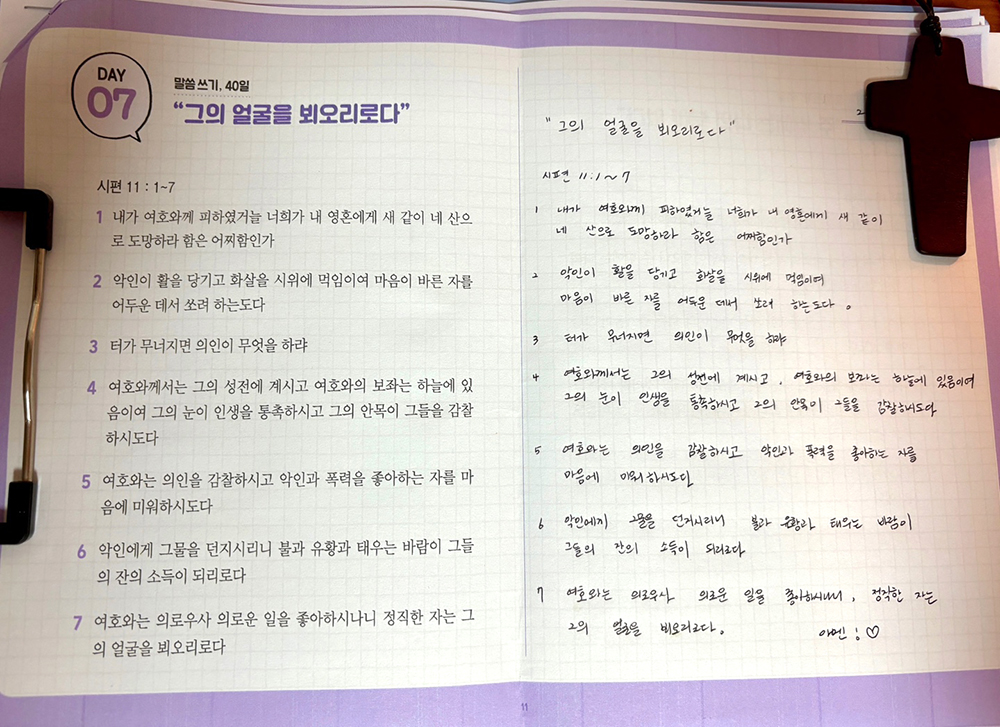 DAY
07
말씀 쓰기, 40일
“그의 얼굴을 뵈오리로다”
시편 11 : 1~7
1 내가 여호와께 피하였거늘 너희가 내 영혼에게 새 같이 네 산으
로 도망하라 함은 어찌함인가
2 악인이 활을 당기고 화살을 시위에 먹임이여 마음이 바른 자를
어두운 데서 쏘려 하는도다
3 터가 무너지면 의인이 무엇을 하랴
4 여호와께서는 그의 성전에 계시고 여호와의 보좌는 하늘에 있
음이여 그의 눈이 인생을 통촉하시고 그의 안목이 그들을 감찰
하시도다
5 여호와는 의인을 감찰하시고 악인과 폭력을 좋아하는 자를 마
음에 미워하시도다
6 악인에게 그물을 던지시리니 불과 유황과 태우는 바람이 그들
의 잔의 소득이 되리로다
7 여호와는 의로우사 의로운 일을 좋아하시나니 정직한 자는 그
의 얼굴을 뵈오리로다
"그의 얼굴을 뵈오리로다"
시편 11:1~7
1 내가 여호와께 피하였거늘 너희가 내 영혼에게 새 같이
네 산으로 도망하라 함은 어찌함인가
2 악인이 활을 당기고 화살을 시위에 먹임이여
마음이 바른 자를 어두운 데서 쏘려 하는도다.
3 터가 무너지면 의인이 무엇을 하랴
4 여호와께서는 그의 성전에 계시고, 여호와의 보좌는 하늘에 있음이여
그의 눈이 인생을 통촉하시고 그의 안목이 그들을 감찰하시도다
5 여호와는 의인을 감찰하시고 악인과 폭력을 좋아하는 자를
마음에 미워하시도다
6 악인에게 그물을 던지시리니 불과 유황과 태우는 바람이
그들의 잔의 소득이 되리로다
7 여호와는 의로우사 의로운 일을 좋아하시나니, 정직한 자는
그의 얼굴을 뵈오리로다.
아멘!♡
11